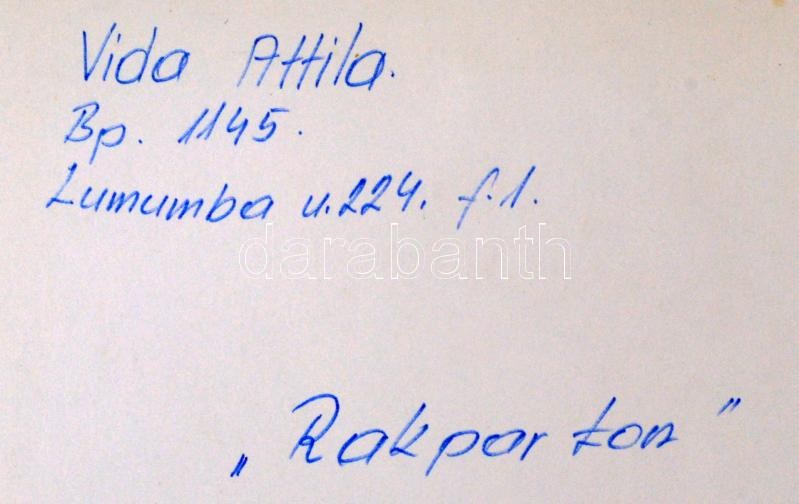 Vida Attila.
Bp. 1145.
Lumumba u. 224. f. 1.
darabanth
„Rakparton"